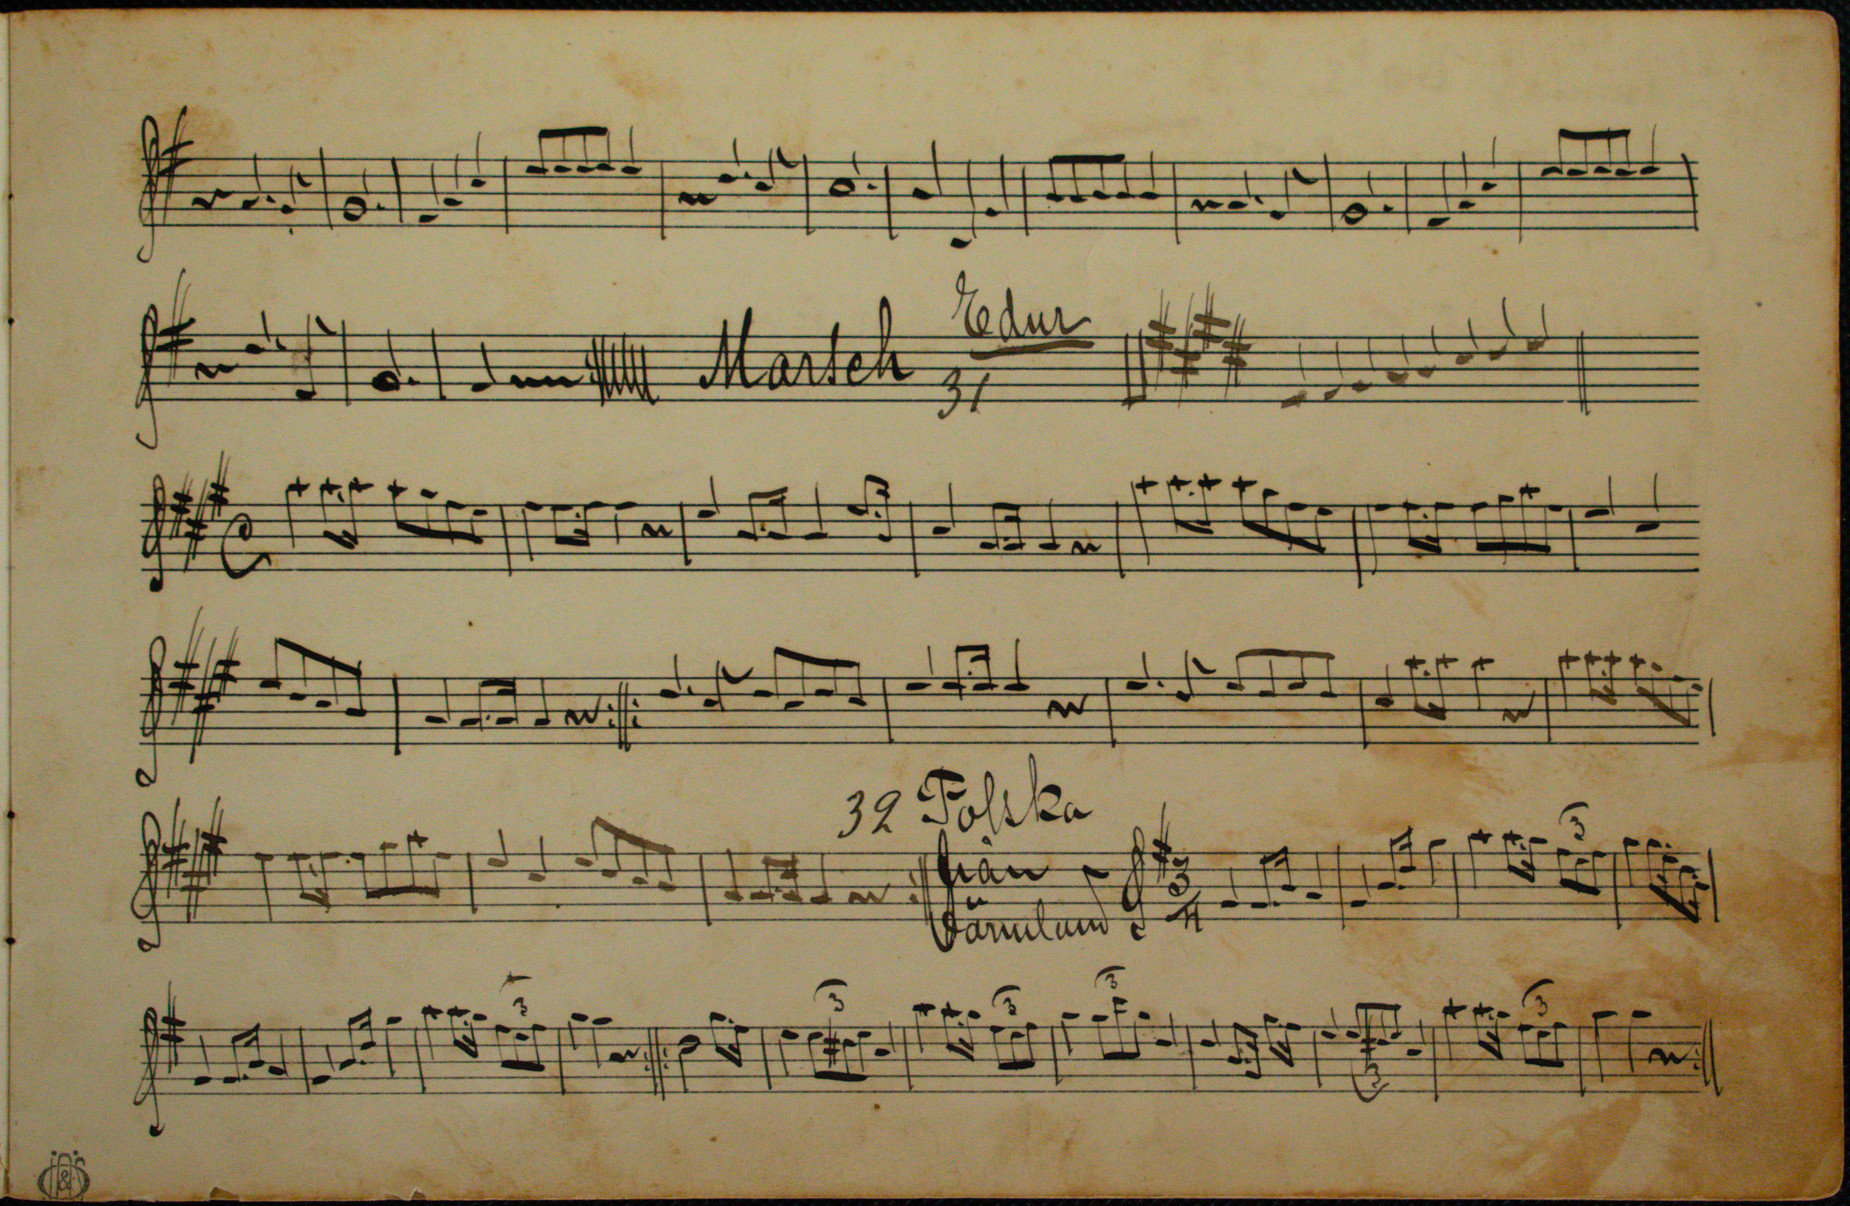 Edur
Marsch
31
32 Polska
från
Värmland
3
4
3
3
3
3
3
3
3